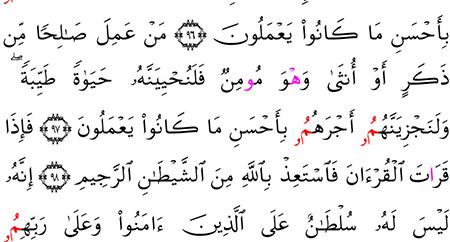 بِأَحْسَنِ مَا كَانُوا۟ يَعْمَلُونَ ۝٩٦ مَنْ عَمِلَ صَـٰلِحًا مِّن
ذَكَرٍ أَوْ أُنثَىٰ وَهْوَ مُومِنٌ فَلَنُحْيِيَنَّهُۥ حَيَوٰةً طَيِّبَةً ۖ
وَلَنَجْزِيَنَّهُمُۥ أَجْرَهُمُۥ بِأَحْسَنِ مَا كَانُوا۟ يَعْمَلُونَ ۝٩٧ فَإِذَا
قَرَاتَ ٱلْقُرْءَانَ فَٱسْتَعِذْ بِٱللَّهِ مِنَ ٱلشَّيْطَـٰنِ ٱلرَّجِيمِ ۝٩٨ إِنَّهُۥ
لَيْسَ لَهُۥ سُلْطَـٰنٌ عَلَى ٱلَّذِينَ ءَامَنُوا۟ وَعَلَىٰ رَبِّهِمُۥ